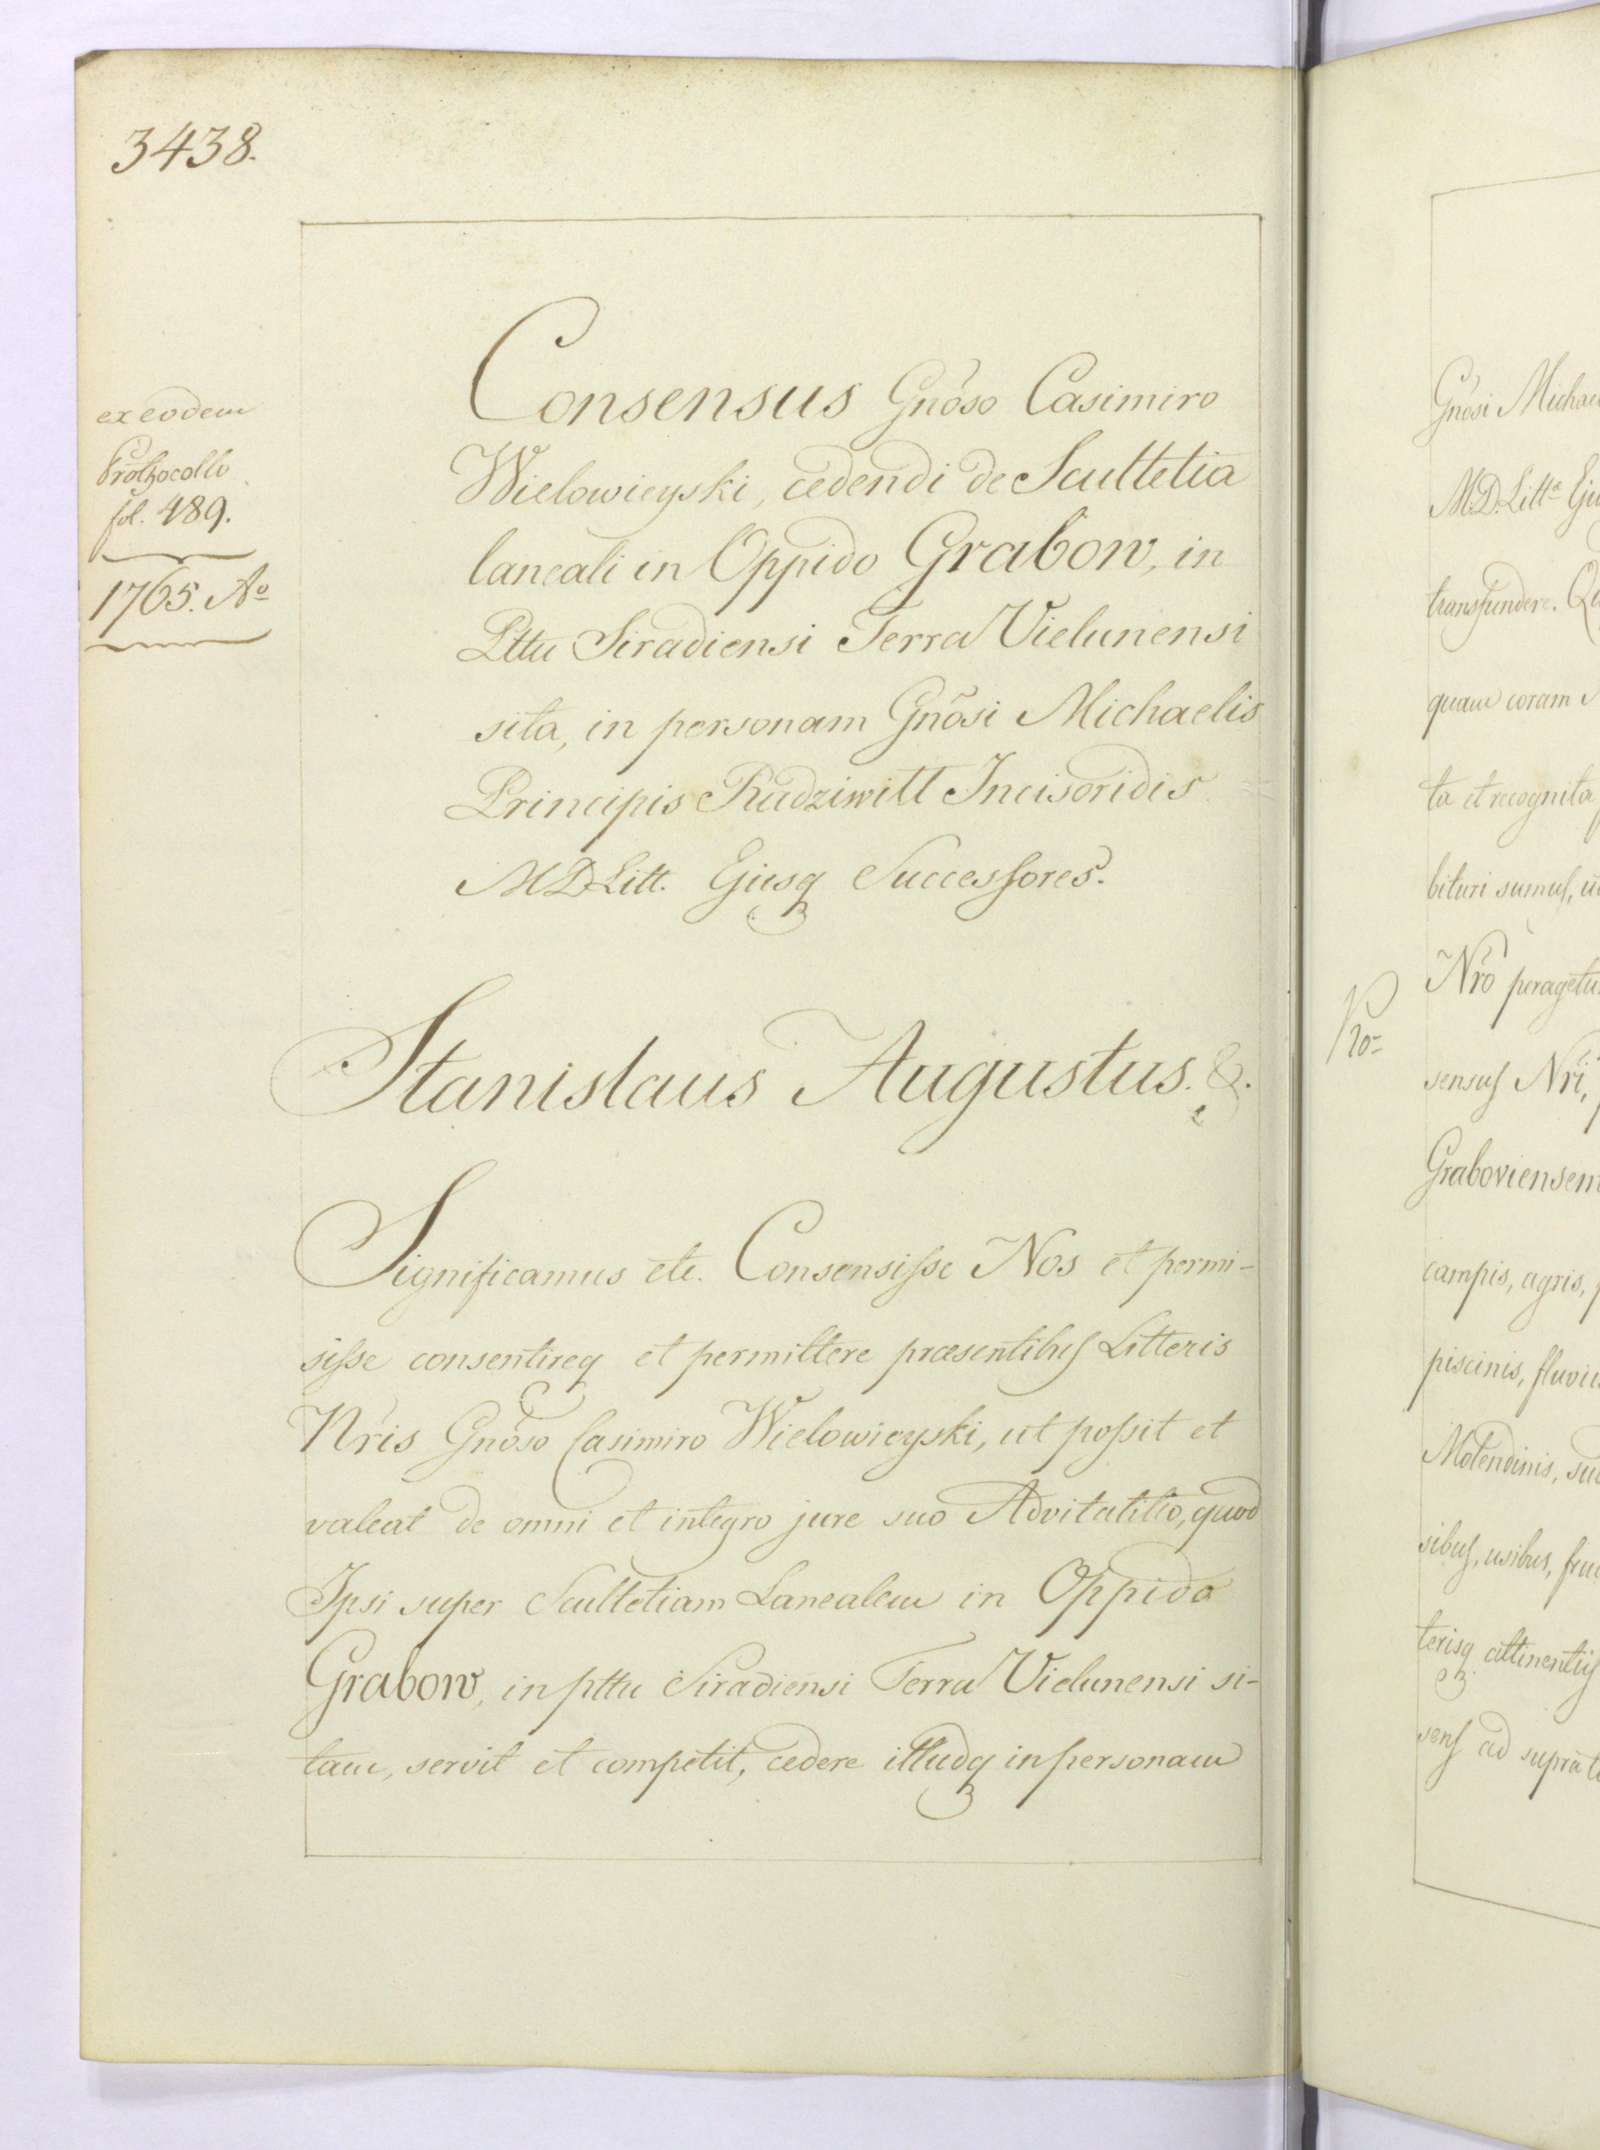 3438.
ex eodem
Prothocollo
fol. 489.
1765. Aº
Consensus Gnõso Casimiro
Wielowieyski, cedendi de Scultetia
laneali in Oppido Grabow, in
Pttu Siradiensi Terra Vielunensi
sita, in personam Gnõsi Michaelis
Principis Radziwitt Incisoridis
MDLitt. Ejusq Successores.
Stanislaus Augustus. &.
Significamus etc. Consensisse Nos et permi-
sisse consentireq et permittere præsentibus Litteris
Nris Gnõso Casimiro Wielowieyski, ut possit et
valeat de omni et integro jure suo Advitalitio, quod
Ipsi super Scultetiam Lanealem in Oppido
Grabow, in pttu Siradiensi Terra Vielunensi si-
tam, servit et competit, cedere illudq in personam
Gnõsi Michae
M.D.Litt
transfundere.
quam coram
ta et recognita
bituri sumus,
Nrõ peragetu
No-
sensus Nri,
Graboviensem
campis, agris,
piscinis, fluvi
Molendinis,
sibus, usibus,
terisq attinentiis
sens ad supra